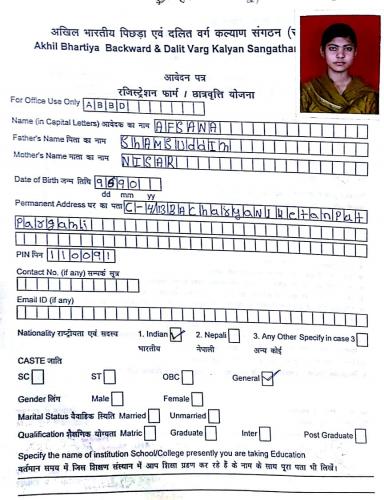 अखिल भारतीय पिछड़ा एवं दलित वर्ग कल्याण संगठन
Akhil Bhartiya Backward & Dalit Varg Kalyan Sangathan
आवेदन पत्र
रजिस्ट्रेशन फार्म / छात्रवृत्ति योजना
For Office Use Only A B B D
Name (in Capital Letters) आवेदक का नाम AFSANA
Father's Name पिता का नाम SHAMSUddIn
Mother's Name माता का नाम NISAR
Date of Birth जन्म तिथि
dd mm yy
Permanent Address घर का पता C-4/132 Acharya Niketan Pat
Parganj
PIN पिन 110091
Contact No. (if any) सम्पर्क सूत्र
Email ID (if any)
Nationality राष्ट्रीयता एवं सदस्य 1. Indian ✓ 2. Nepali 3. Any Other Specify in case 3
भारतीय नेपाली अन्य कोई
CASTE जाति
SC ST OBC General ✓
Gender लिंग Male Female
Marital Status वैवाहिक स्थिति Married Unmarried
Qualification शैक्षणिक योग्यता Matric Graduate Inter Post Graduate
Specify the name of institution School/College presently you are taking Education
वर्तमान समय में जिस शिक्षण संस्थान में आप शिक्षा ग्रहण कर रहे हैं के नाम के साथ पूरा पता भी लिखें।